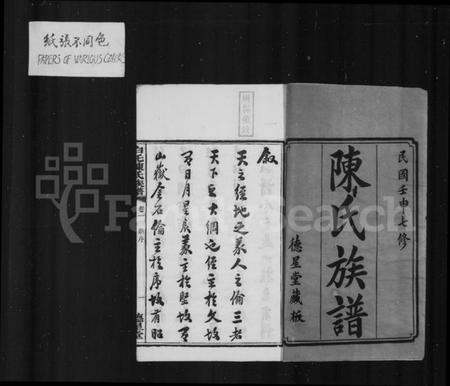 紙張不同色
PAPERS OF VARIOUS COLORS
民國壬申七修
陳氏族譜
德星堂藏板
敘
天之經地之義人之倫三者
天下之大綱也經主於文故
有日月星辰義主於堅故有
山嶽金石倫主於序故有昭
陳氏族譜
卷一
德星堂
FamilySearch